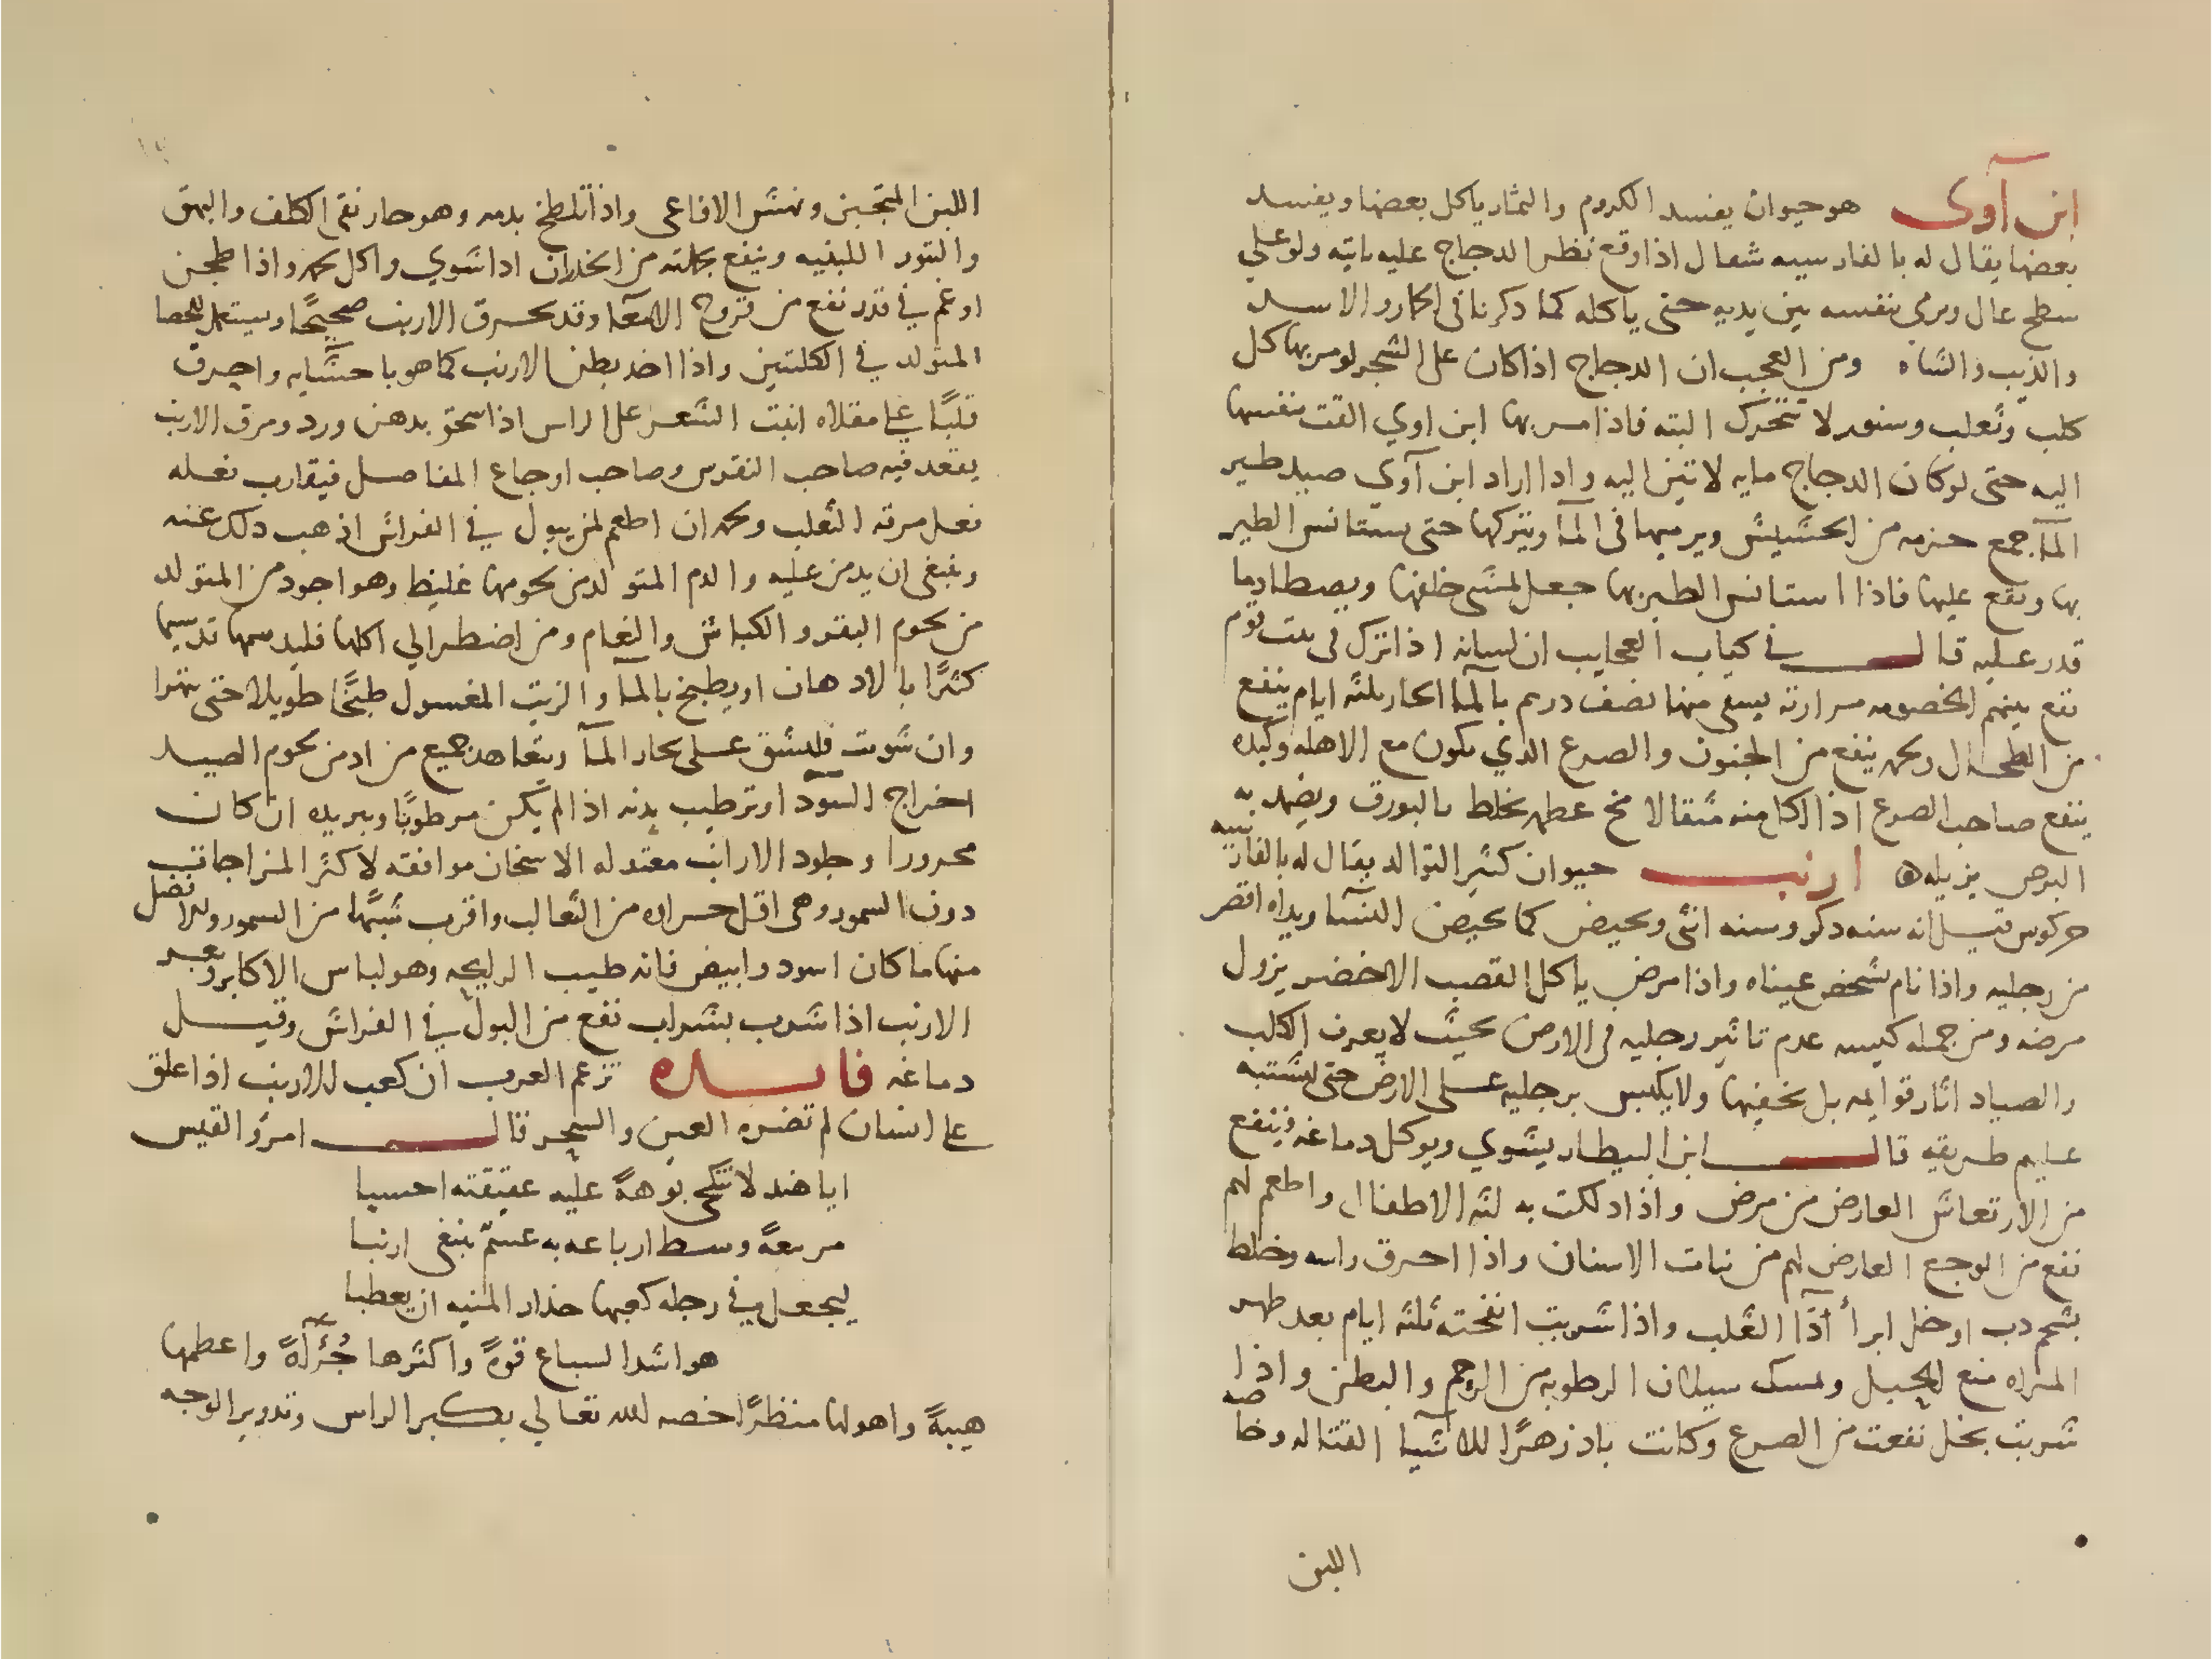 ابن آوى هو حيوان يفسد الكروم والثمار ياكل بعضها ويفسد
بعضها يقال له بالفارسيه شغال اذا وقع نظر الدجاج عليه ياتيه ولو على
سطح عال ويرمى بنفسه بين يديه حتى ياكله كما ذكرنا فى الحمار والاسد
والذيب والشاه ومن العجب ان الدجاج اذا كان على الشجر لو مر بها كل
كلب وثعلب وسنور لا تتحرك البته فاذا مر بها ابن اوي القت نفسها
اليه حتى لو كان الدجاج مايه لاتين اليه واذا اراد ابن آوي صيد طير
المآ جمع حزمه من الحشيش ويرميها فى المآ ويتركها حتى يستانس الطير
بها ويقع عليها فاذا استانس الطير بها جعل المشى خلفها ويصطاد ما
قدر عليه قال في كتاب العجايب ان لسانه اذا ترك فى بيت قوم
تقع بينهم الخصومه مرارته يسقى منها نصف درهم بالمآ الحار ثلثه ايام ينفع
من الطحال ولحمه ينفع من الجنون والصرع الذي يكون مع الاهله وكبده
ينفع صاحب الصرع اذا اكل منه مثقالا مخ عظمه يخلط بالبورق ويضمد به
البرص يزيله ه ارنب حيوان كثير التوالد يقال له بالفارسيه
خركوس قيل انه سنه ذكر وسنه انثى ويحيض كما تحيض النسآ ويداه اقصر
من رجليه واذا نام شخص عيناه واذا مرض ياكل القصب الاخضر يزول
مرضه ومن جمله كيسه عدم تاثير رجليه فى الارض بحيث لا يعرف الكلب
والصياد اثار قوايمه بل يخفيها ولا يكبس برجليه على الارض حتى يشتبه
عليهم طريقه قال ابن البيطار يشوي ويوكل دماغه فينفع
من الارتعاش العارض من مرض واذا دلكت به لثه الاطفال واطعم لهم
نفع من الوجع العارض لهم من نبات الاسنان واذا احرق راسه وخلط
بشحم دب او خل ابرأ دآ الثعلب واذا شربت انفحته ثلثه ايام بعد طهر
المراه منع الحبل ويمسك سيلان الرطوبه من الرحم والبطن واذا
شربت بخل نفعت من الصرع وكانت باد زهرًا للاشيا القتاله وخاصه
اللبن
اللبن المتجبن ونهش الافاعى واذا تلطخ بدمه وهو حار نقى الكلف والبهق
والبثور اللبنيه وينفع بجملته من الخدران اذا شوي واكل لحمه واذا طجن
او غم في قدر نفع من قروح الامعآ وقد يحرق الارنب صحيحًا ويستعمل للحصا
المتولد في الكليتين واذا اخذ بطن الارنب كما هو باحشايه واحرق
قليًا على مقلاه انبت الشعر على الراس اذا سحق بدهن ورد ومرق الارنب
يقعد فيه صاحب النقرس وصاحب اوجاع المفاصل فيقارب فعله
فعل مرقه الثعلب ولحمه ان اطعم لمن يبول في الفراش اذهب ذلك عنه
وينبغى ان يدمن عليه والدم المتولد من لحومها غليظ وهو اجود من المتولد
من لحوم البقر والكباش والنعام ومن اضطر الي اكلها فليدسمها تدسيما
كثيرًا بالادهان او يطبخ بالمآ والزيت المغسول طبخًا طويلا حتى يتهرا
وان شويت فليشق على بخار المآ ويتعاهد جميع من ادمن لحوم الصيد
اخراج السودآ وترطيب بدنه اذا لم يكن مرطوبًا وتبريده ان كان
محرورا وجلود الارانب معتدله الاسخان موافقه لاكثر المزاجات
دون السمور وهى اقل حراره من الثعالب واقرب شبهًا من السمور والافضل
منها ما كان اسود وابيض فانه طيب الرايحه وهو لباس الاكابر وبعر
الارنب اذا شرب بشراب نفع من البول في الفراش وقيل
دماغه فايده تزعم العرب ان كعب الارنب اذا علق
على انسان لم تضره العين والسحر قال امرؤ القيس
ايا هند لا تنكحى بوهةً عليه عقيقته احسبا
مرسعةً وسط ارباعه به عسم يبتغى ارنبا
ليجعل في رجله كعبها حذار المنيه ان يعطبا
هو اشد السباع قوةً واكثرها جُرْأةً واعظمها
هيبةً واهولها منظرًا خصه الله تعالي بكبر الراس وتدوير الوجه